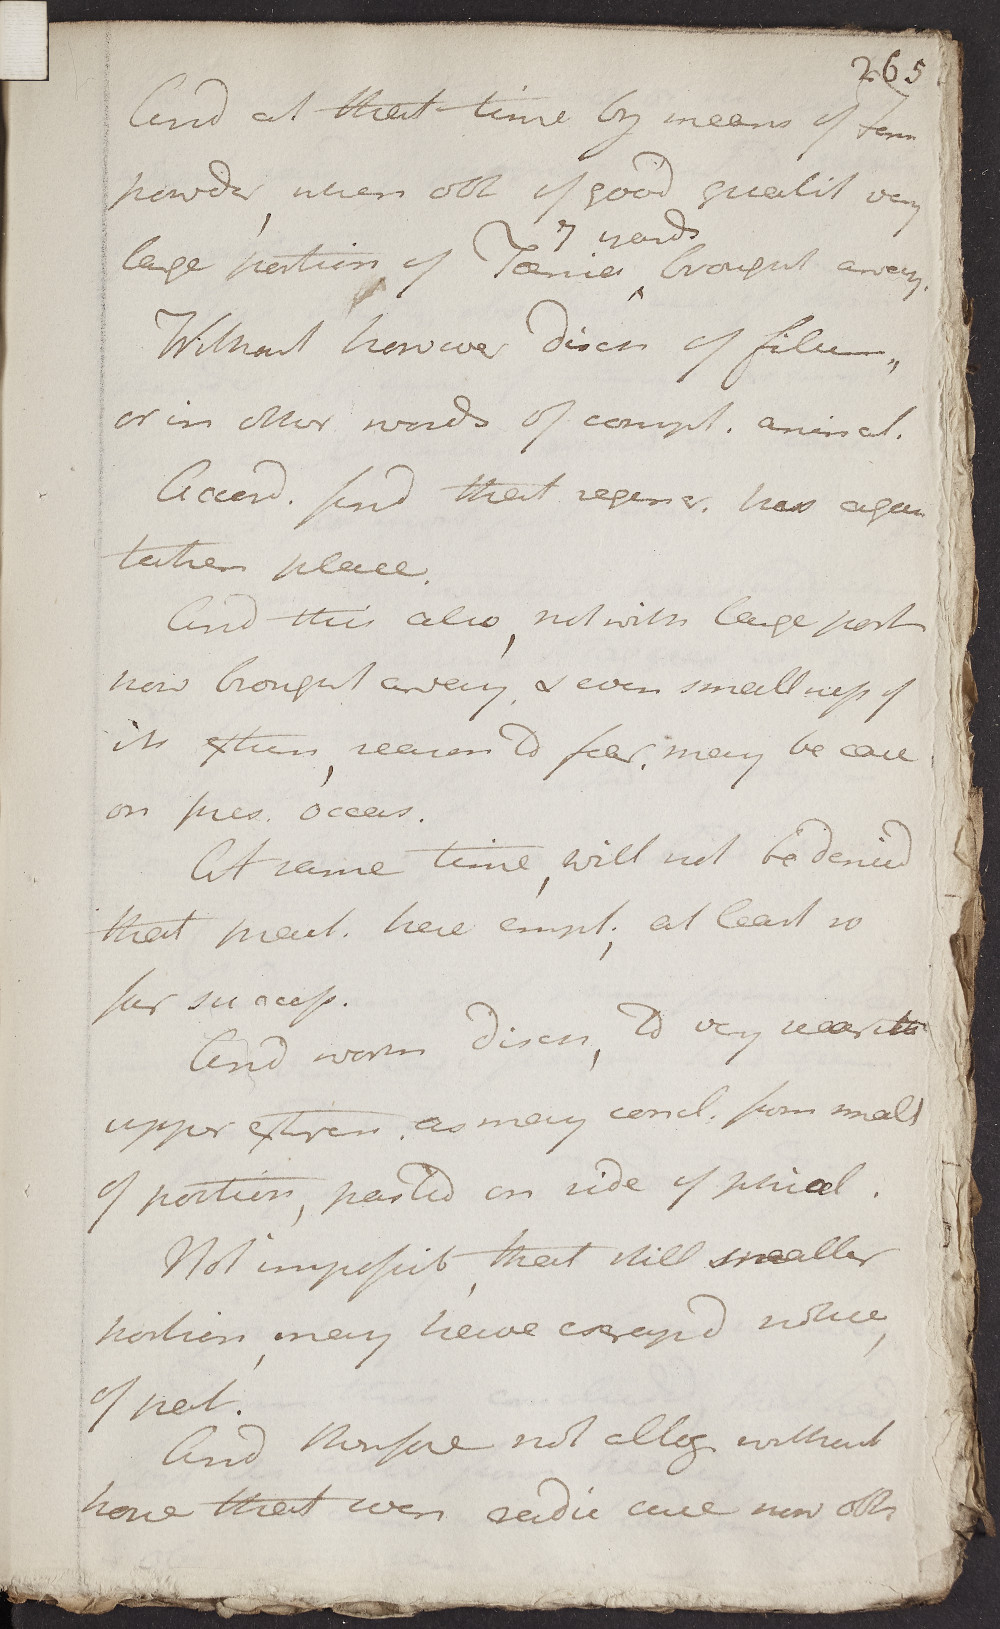 265
And at that time by means of Tinn
powder, when obt of good qualit very
7 yards
large portion of Tænia, brought away.
Without however discn of filum,,
or in other words of compl. animal.
Accord. find that regener. has again
taken place.
And this also, notwith large port
now brought away, & even smallness of
its extrem, reason to fear, may be case
on pres. occas.
At same time, will not be denied
that pract. here empl., at least so
far success.
And worm discn, to very near its
upper extrem. as may concl. from small
of portion, pasted on side of phial.
Not impossib, that still smaller
portion, may have escap'd notice,
of pat.
And therefore not alleg without
hone that even radic cure now obt